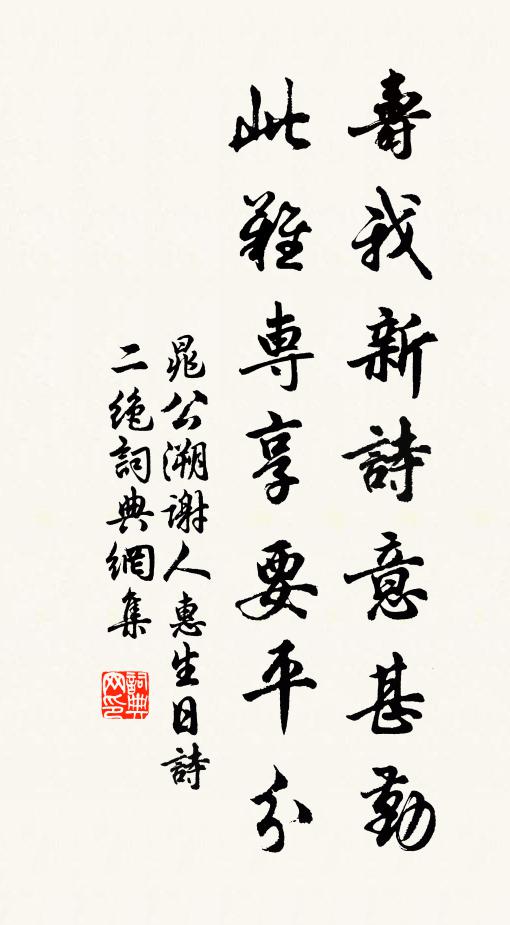 壽我新詩意甚勤
此難專享要平分
晁公溯謝人惠生日詩
二絕詞典網集
詞典网印